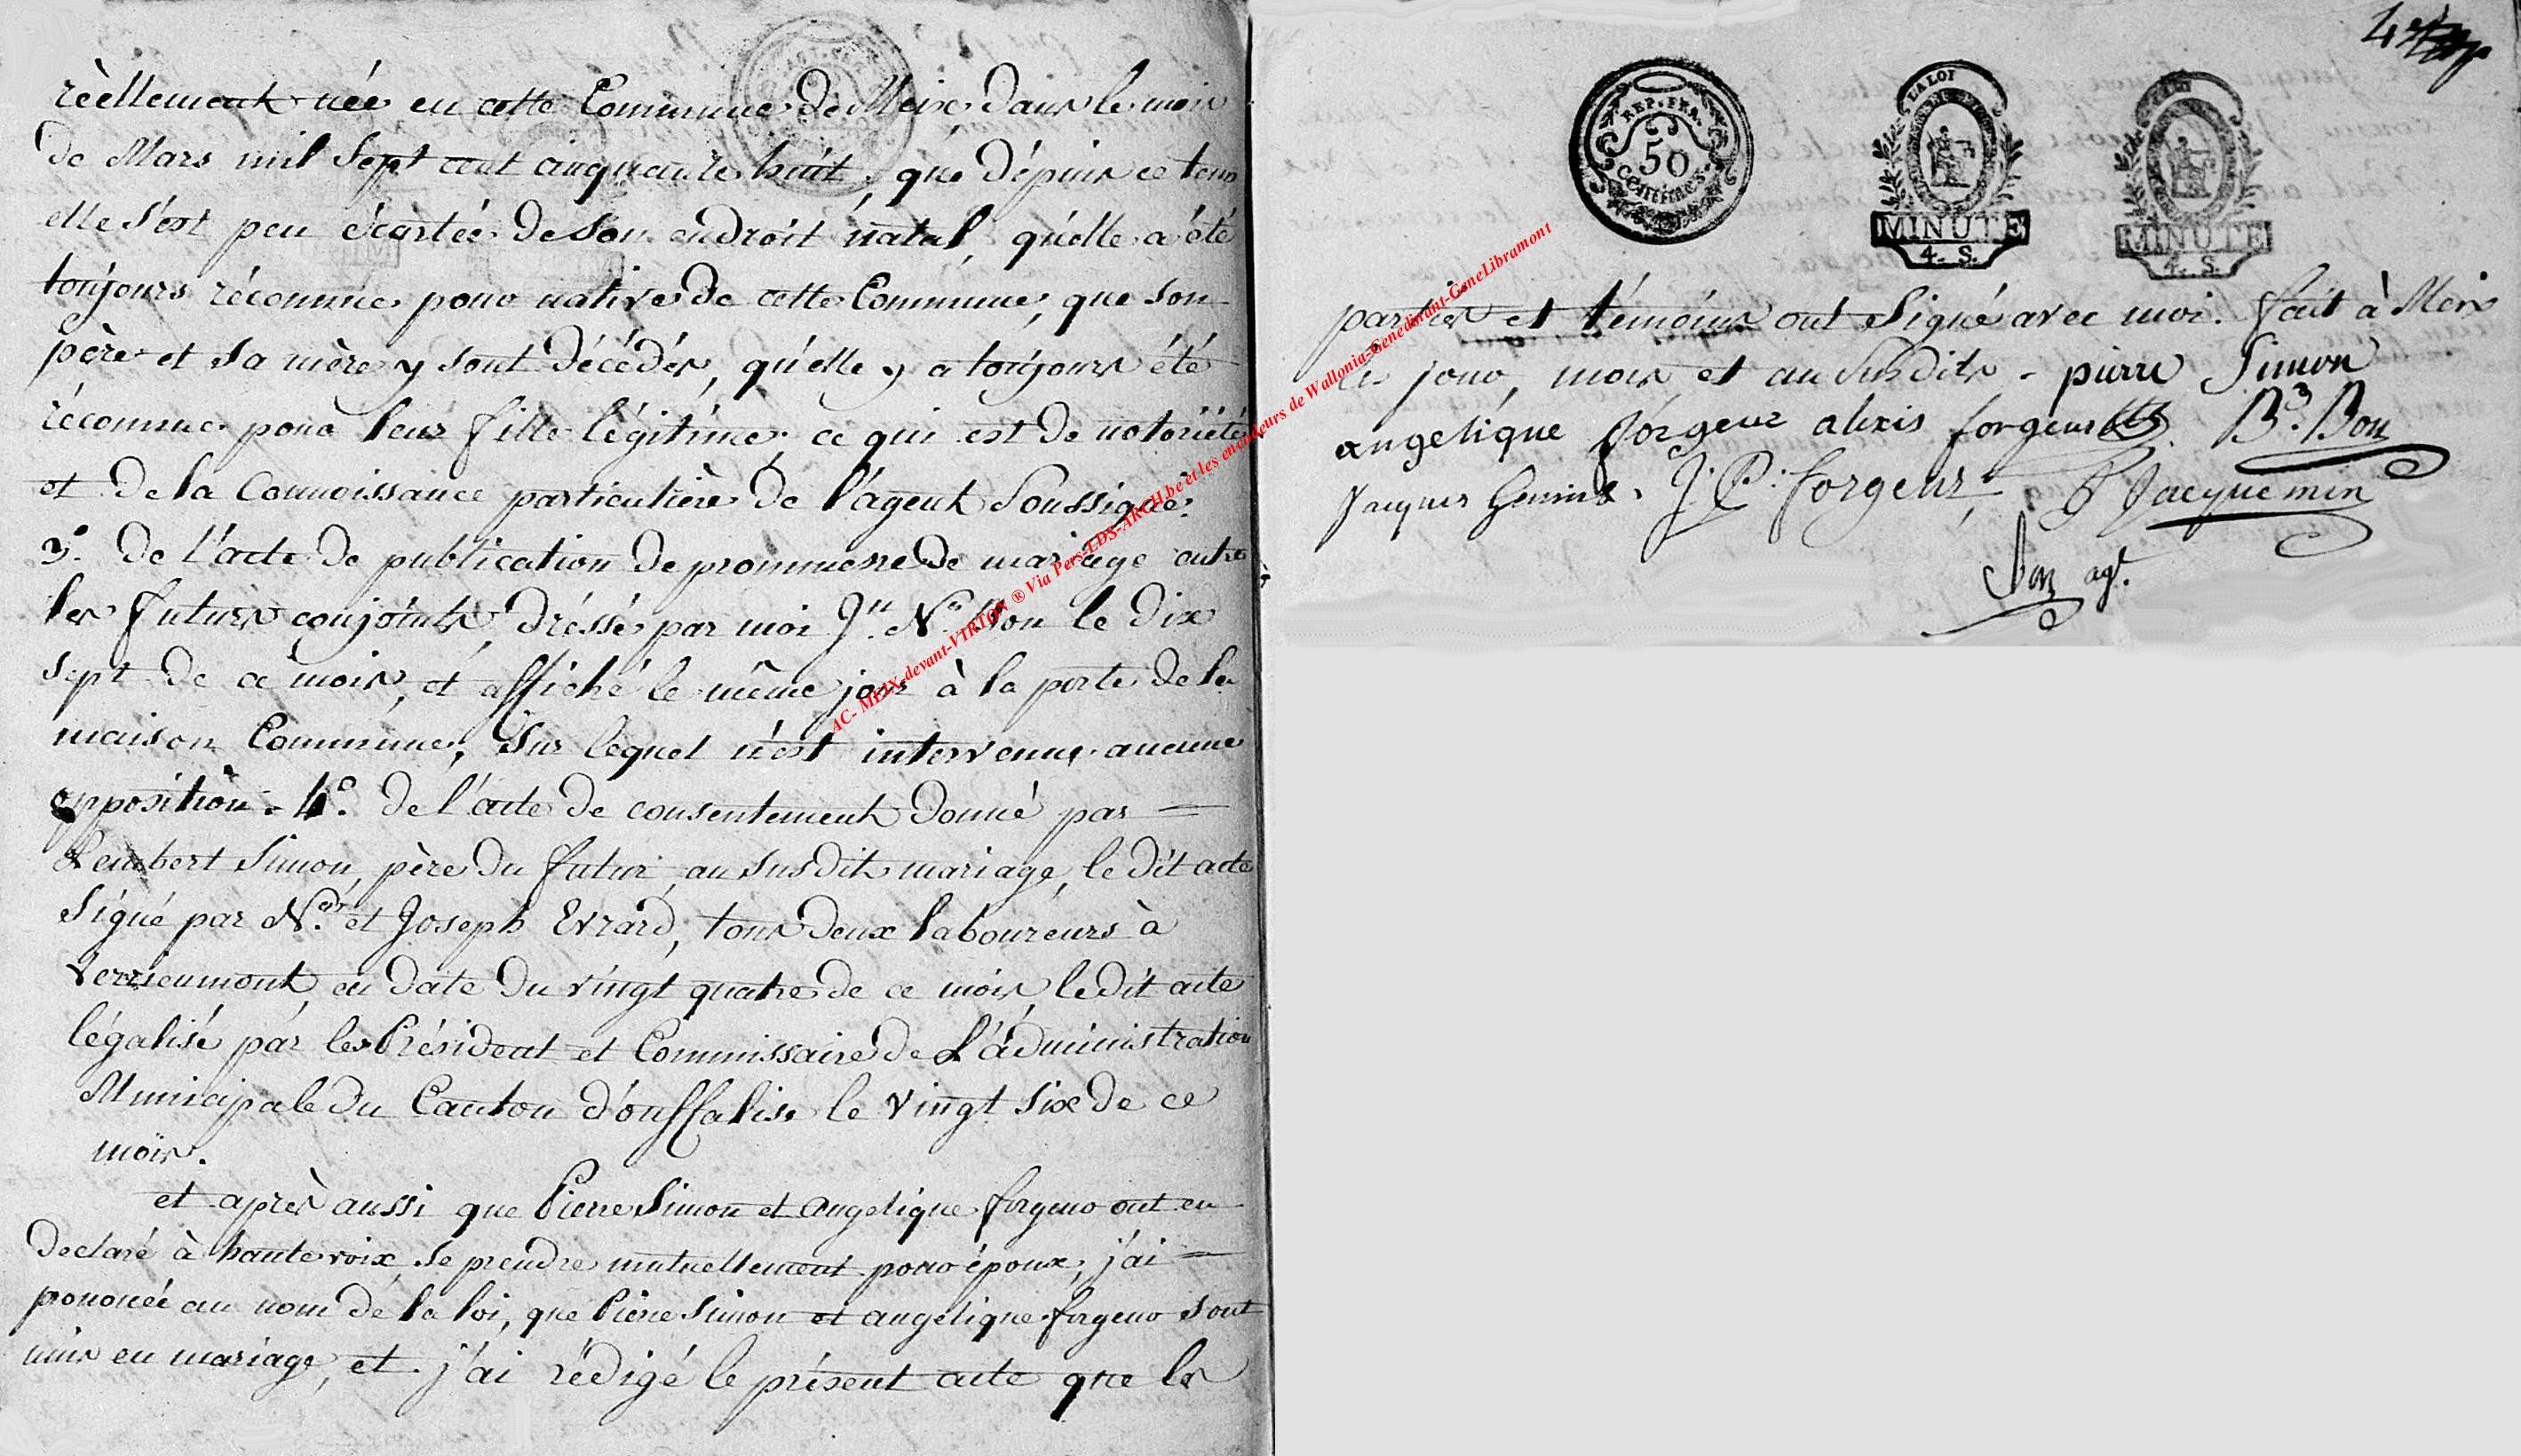 réellement née en cette Commune de Meix dans le mois
de Mars mil sept cent cinquante huit, que dépuis ce tems
elle s'est peu écartée de son endroit natal, qu'elle a été
toujours réconnue pour native de cette Commune, que son
père et sa mère y sont décédés, qu'elle y a toujours été
réconnue pour leur fille légitime, ce qui est de notoriété
et de la Connoissance particulière de l'agent Soussigné.
3°. De l'acte de publication de prommesse de mariage entre
les futurs conjoints, dréssé par moi Jn. Ns. Bon le dix
sept de ce mois, et affiché le même jour à la porte de la
maison Commune, sur lequel n'est intervenu aucune
opposition. 4°. de l'acte de consentement donné par =
Lembert Simon, père du futur, au susdit mariage, le dit acte
signé par Nas. et Joseph Evrard, tous deux laboureurs à
Verrieumont en date du vingt quatre de ce mois, le dit acte
légalisé par les Président et Commissaire de L'administration
Municipale du Canton d'ouffalise le vingt six de ce
mois.
et après aussi que Pierre Simon et angelique forgeur ont eu
declaré à haute voix, se prendre mutuellement pour époux, j'ai =
pononcé au nom de la loi, que Pierre Simon et angelique forgeur sont
unis en mariage, et j'ai rédigé le présent acte que les
REP. FRA.
50
centimes
LA LOI
MINUTE
4. S.
MINUTE
4. S.
parties et témoins ont signé avec moi. fait à Meix
les jour, mois et an susdits. pierre Simon
angelique forgeur alexis forgeur B. Bon
Jacques J. P. forgeur Jacquemin
Bon agt.
AC- MEIX-devant-VIRTON ® Via Pers-LDS-ARCH.be et les encodeurs de Wallonia-Genedinant-GeneLibramont